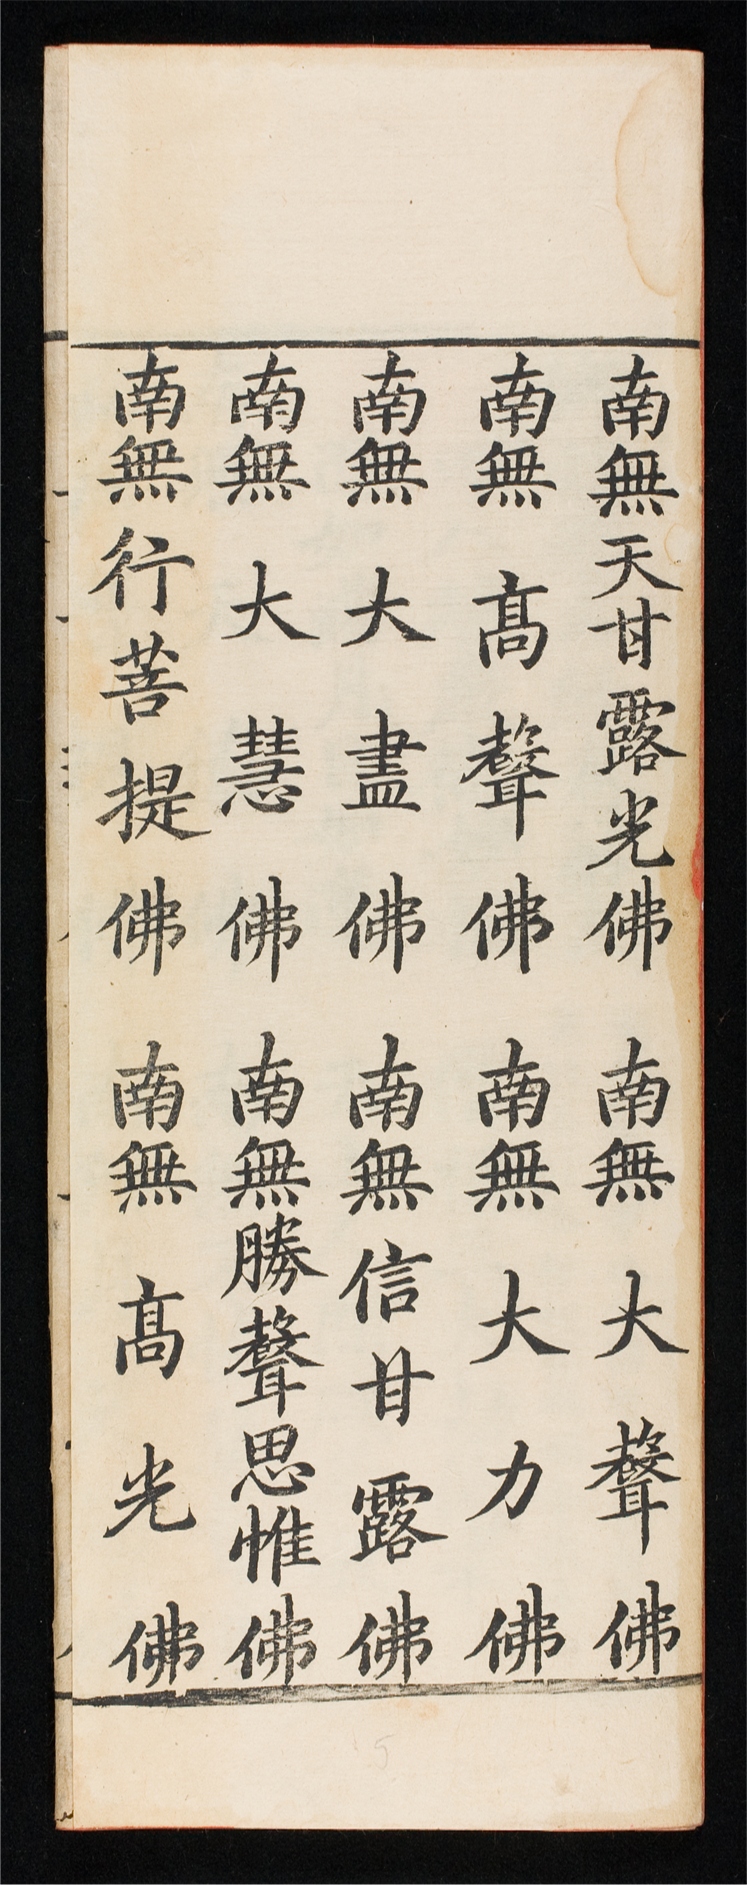 南無天甘露光佛南無大聲佛
南無髙聲佛南無大力佛
南無大盡佛南無信甘露佛
南無大慧佛南無勝聲思惟佛
南無行菩提佛南無髙光佛